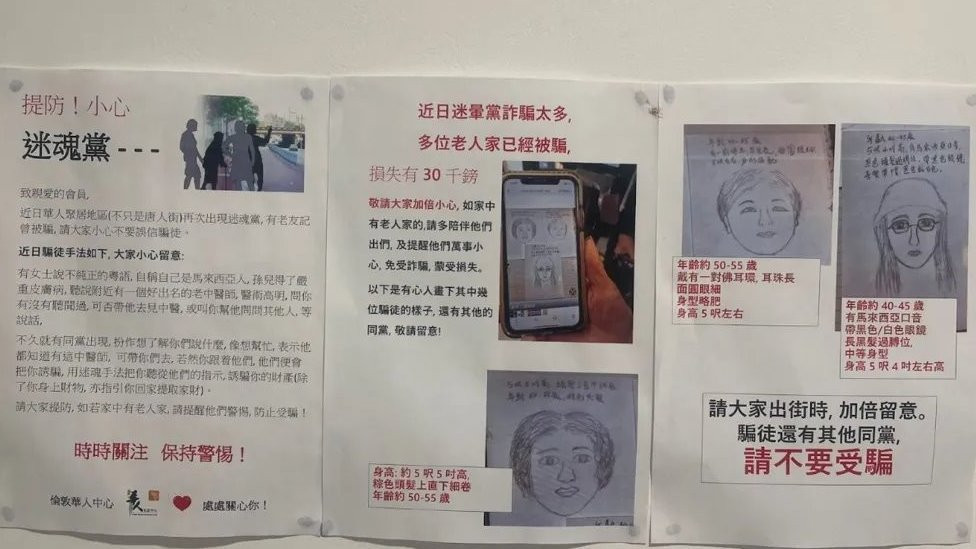 提防！小心
迷魂黨 ---
致親愛的會員,
近日華人聚居地區(不只是唐人街)再次出現迷魂黨, 有老友記
曾被騙, 請大家小心不要誤信騙徒。
近日騙徒手法如下, 大家小心留意:
有女士說不純正的粵語, 自稱自己是馬來西亞人, 孫兒得了嚴
重皮膚病, 聽說附近有一個好出名的老中醫師, 醫術高明, 問你
有沒有聽聞過, 可否帶他去見中醫, 或叫你幫他問問其他人, 等
說話,
不久就有同黨出現, 扮作想了解你們說什麼, 像想幫忙, 表示他
都知道有這中醫師, 可帶你們去, 若然你跟着他們, 他們便會
把你誘騙, 用迷魂手法把你聽從他們的指示, 誘騙你的財產(除
了你身上財物, 亦指引你回家提取家財)。
請大家提防, 如若家中有老人家, 請提醒他們警惕, 防止受騙！
時時關注 保持警惕！
倫敦華人中心
處處關心你！
近日迷暈黨詐騙太多,
多位老人家已經被騙,
損失有 30 千鎊
敬請大家加倍小心, 如家中
有老人家的,請多陪伴他們
出們, 及提醒他們萬事小
心, 免受詐騙, 蒙受損失。
以下是有心人畫下其中幾
位騙徒的樣子, 還有其他的
同黨, 敬請留意!
身高: 約 5 呎 5 吋高,
棕色頭髮上直下細卷
年齡約 50-55 歲
年齡約 50-55 歲
戴有一對佛耳環, 耳珠長
面圓眼細
身型略肥
身高 5 呎左右
年齡約 40-45 歲
有馬來西亞口音
帶黑色/白色眼鏡
長黑髮過膊位,
中等身型
身高 5 呎 4 吋左右高
請大家出街時, 加倍留意。
騙徒還有其他同黨,
請不要受騙